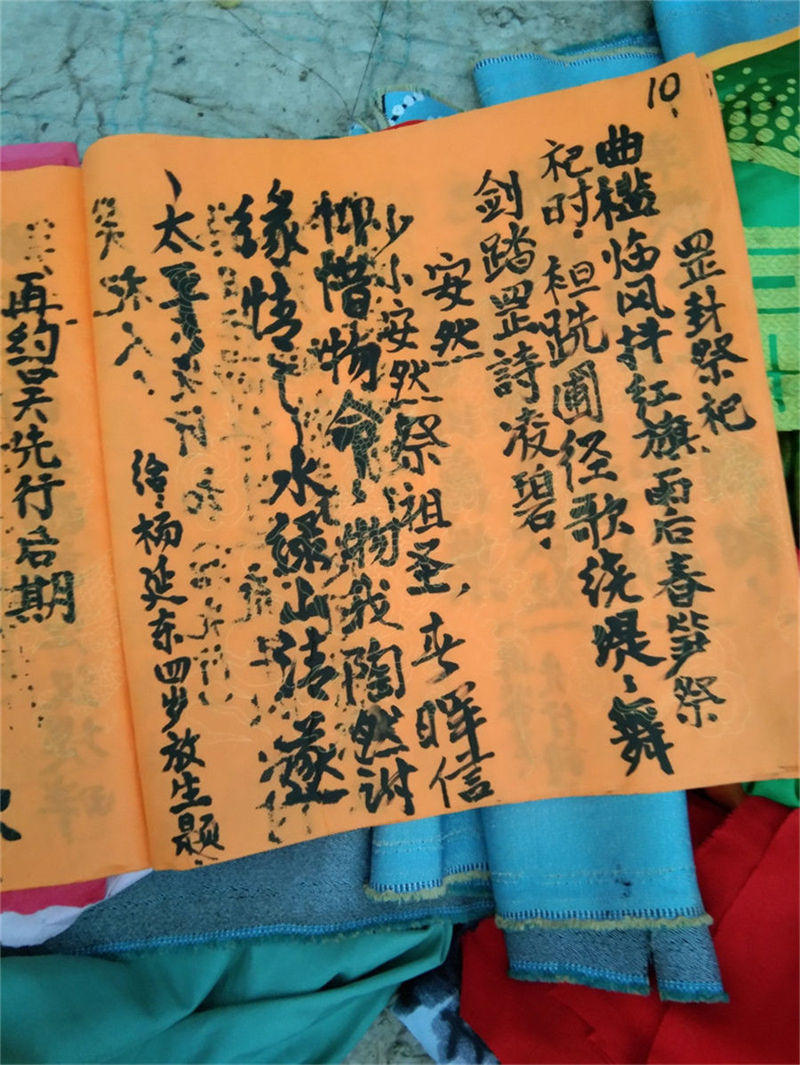 10.
罡封祭祀
曲槛临风抖红旗雨后春笋祭
祀时.柦跣圃径歌绕堤、舞
剑踏罡詩凌碧.
安然
少小安然祭祖圣,春晖信
仰惜物命、物我陶然谢
缘情之水绿山清邃
、太平
给:杨延东四岁放生题.
再约吴先行后期